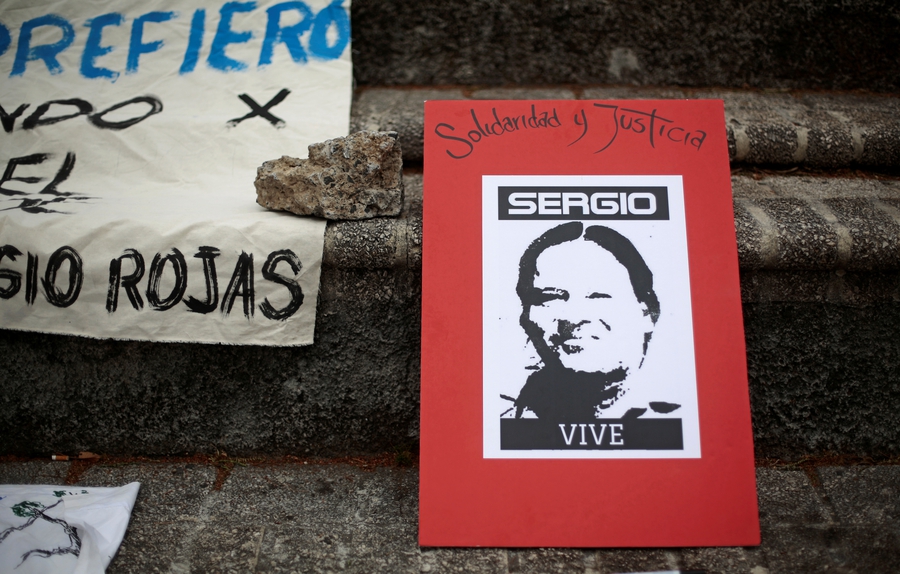 PREFIERO
NDO X
EL
GIO ROJAS
Solidaridad y Justicia
SERGIO
VIVE